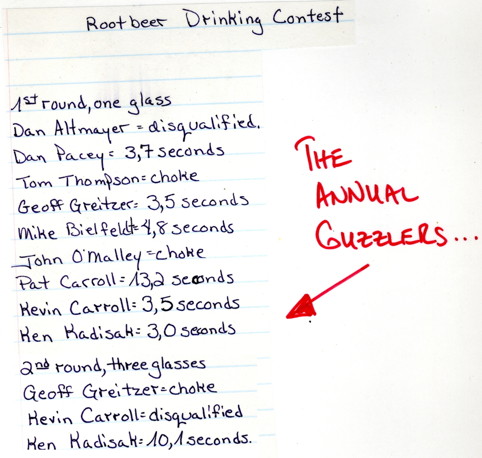 Rootbeer Drinking Contest
1st round, one glass
Dan Altmayer = disqualified.
Dan Pacey = 3,7 seconds
Tom Thompson = choke
Geoff Greitzer = 3,5 seconds
Mike Bielfeldt = 4,8 seconds
John O'Malley = choke
Pat Carroll = 13,2 seconds
Kevin Carroll = 3,5 seconds
Ken Kadisak = 3,0 seconds
2nd round, three glasses
Geoff Greitzer = choke
Kevin Carroll = disqualified
Ken Kadisak = 10,1 seconds.
THE
ANNUAL
GUZZLERS...